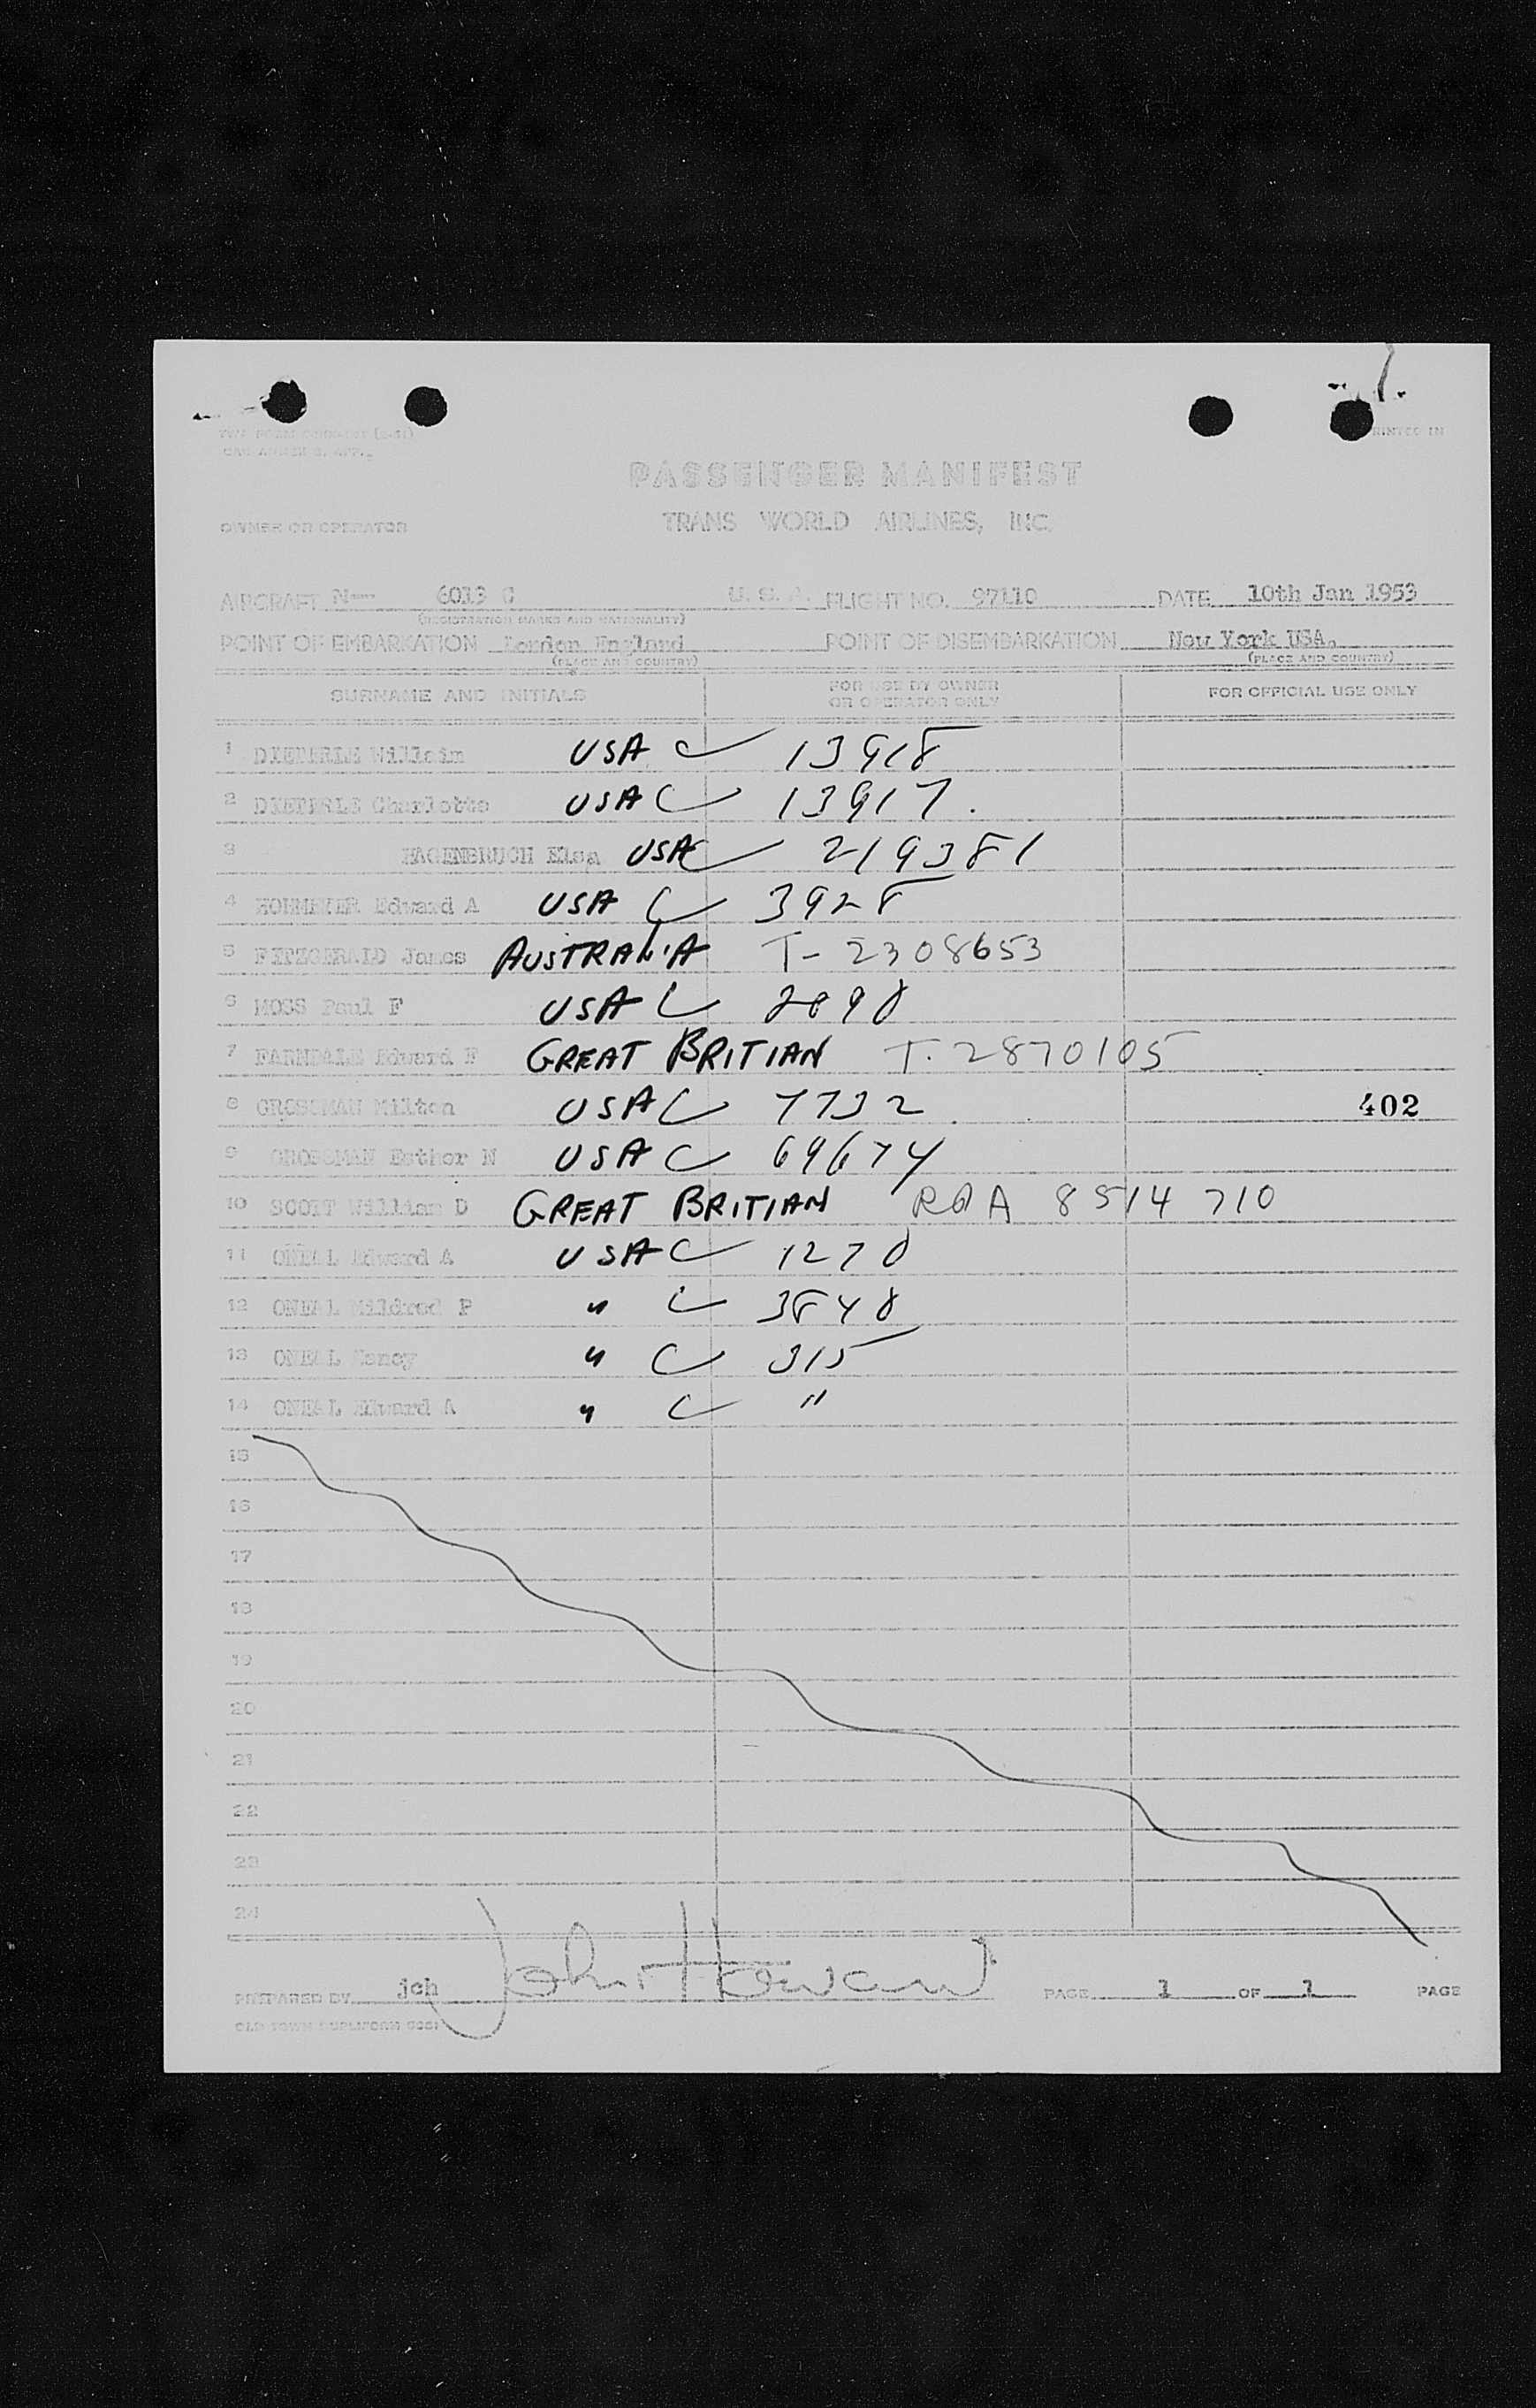 PRINTED IN
PASSENGER MANIFEST
OWNER OR OPERATOR TRANS WORLD AIRLINES, INC.
AIRCRAFT N-- 6013 C U. S. A. FLIGHT NO. 97110 DATE 10th Jan 1953
(REGISTRATION MARKS AND NATIONALITY)
POINT OF EMBARKATION London England POINT OF DISEMBARKATION New York USA.
(PLACE AND COUNTRY) (PLACE AND COUNTRY)
SURNAME AND INITIALS FOR USE BY OWNER OR OPERATOR ONLY FOR OFFICIAL USE ONLY
1 DIETERLE Willeim USA C 13918
2 DIETERLE Charlotte USA C 13917.
3 HAGENBRUCH Elsa USA C 219381
4 Edward A USA C 3928
5 FITZGERALD James AUSTRALIA T- 2308653
6 MOSS Paul F USA C 2898
7 Edward F GREAT BRITIAN T. 2870105
8 GROSSMAN Milton USA C 7732 402
9 GROSSMAN Esther N USA C 69674
10 SCOTT William D GREAT BRITIAN 8514710
11 ONEAL Edward A USA C 1278
12 ONEAL Mildred P " C 3848
13 ONEAL Nancy " C 315
14 ONEAL Edward A " C "
15
16
17
18
19
20
21
22
23
24
PREPARED BY jch John Howard PAGE 1 OF 1 PAGE